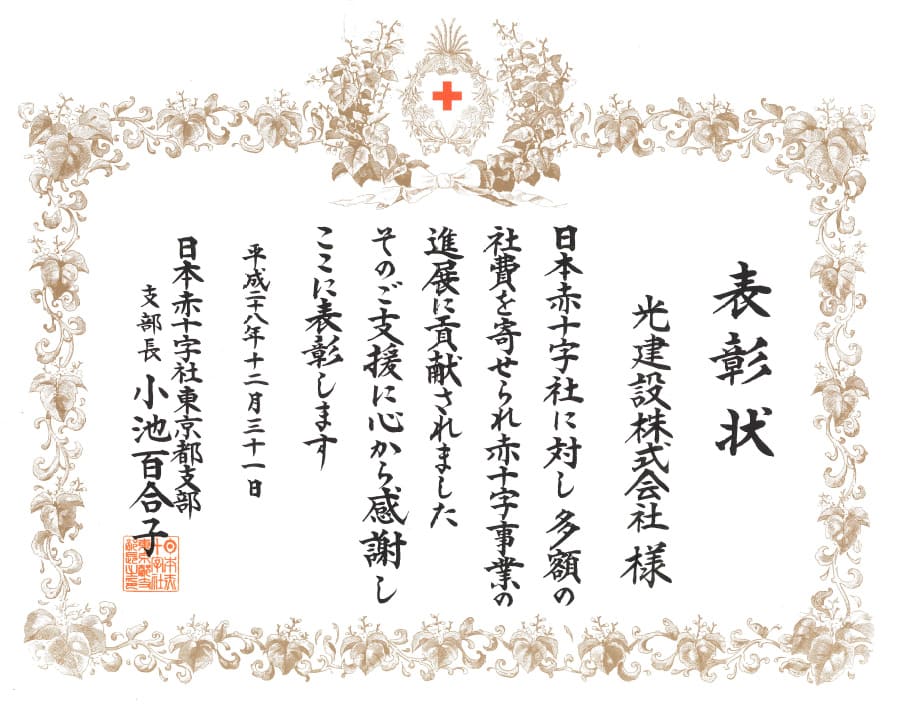 表彰状
光建設株式会社 様
日本赤十字社に対し多額の
社費を寄せられ赤十字事業の
進展に貢献されました
そのご支援に心から感謝し
ここに表彰します
平成二十八年十二月三十一日
日本赤十字社東京都支部
支部長 小池百合子